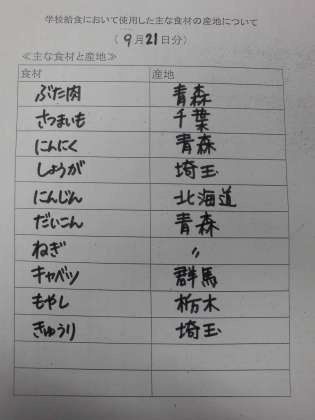 学校給食において使用した主な食材の産地について
（9月21日分）
≪主な食材と産地≫
食材 産地
ぶた肉 青森
さつまいも 千葉
にんにく 青森
しょうが 埼玉
にんじん 北海道
だいこん 青森
ねぎ 〃
キャベツ 群馬
もやし 栃木
きゅうり 埼玉